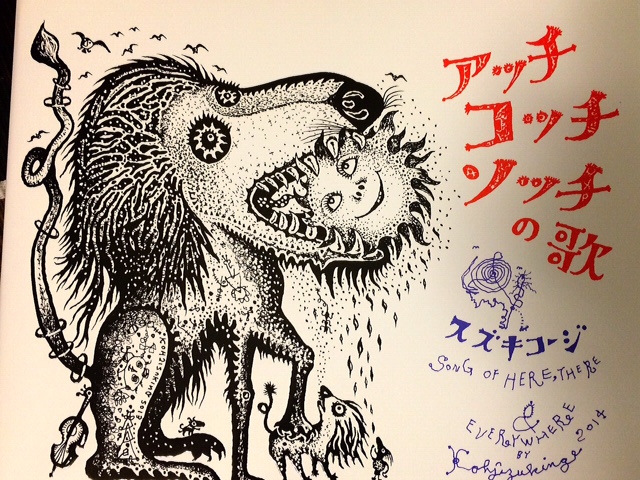 アッチ
コッチ
ソッチ
の歌
スズキコージ
SONG OF HERE, THERE
&
EVERYWHERE
BY
Kohjizukingo 2014